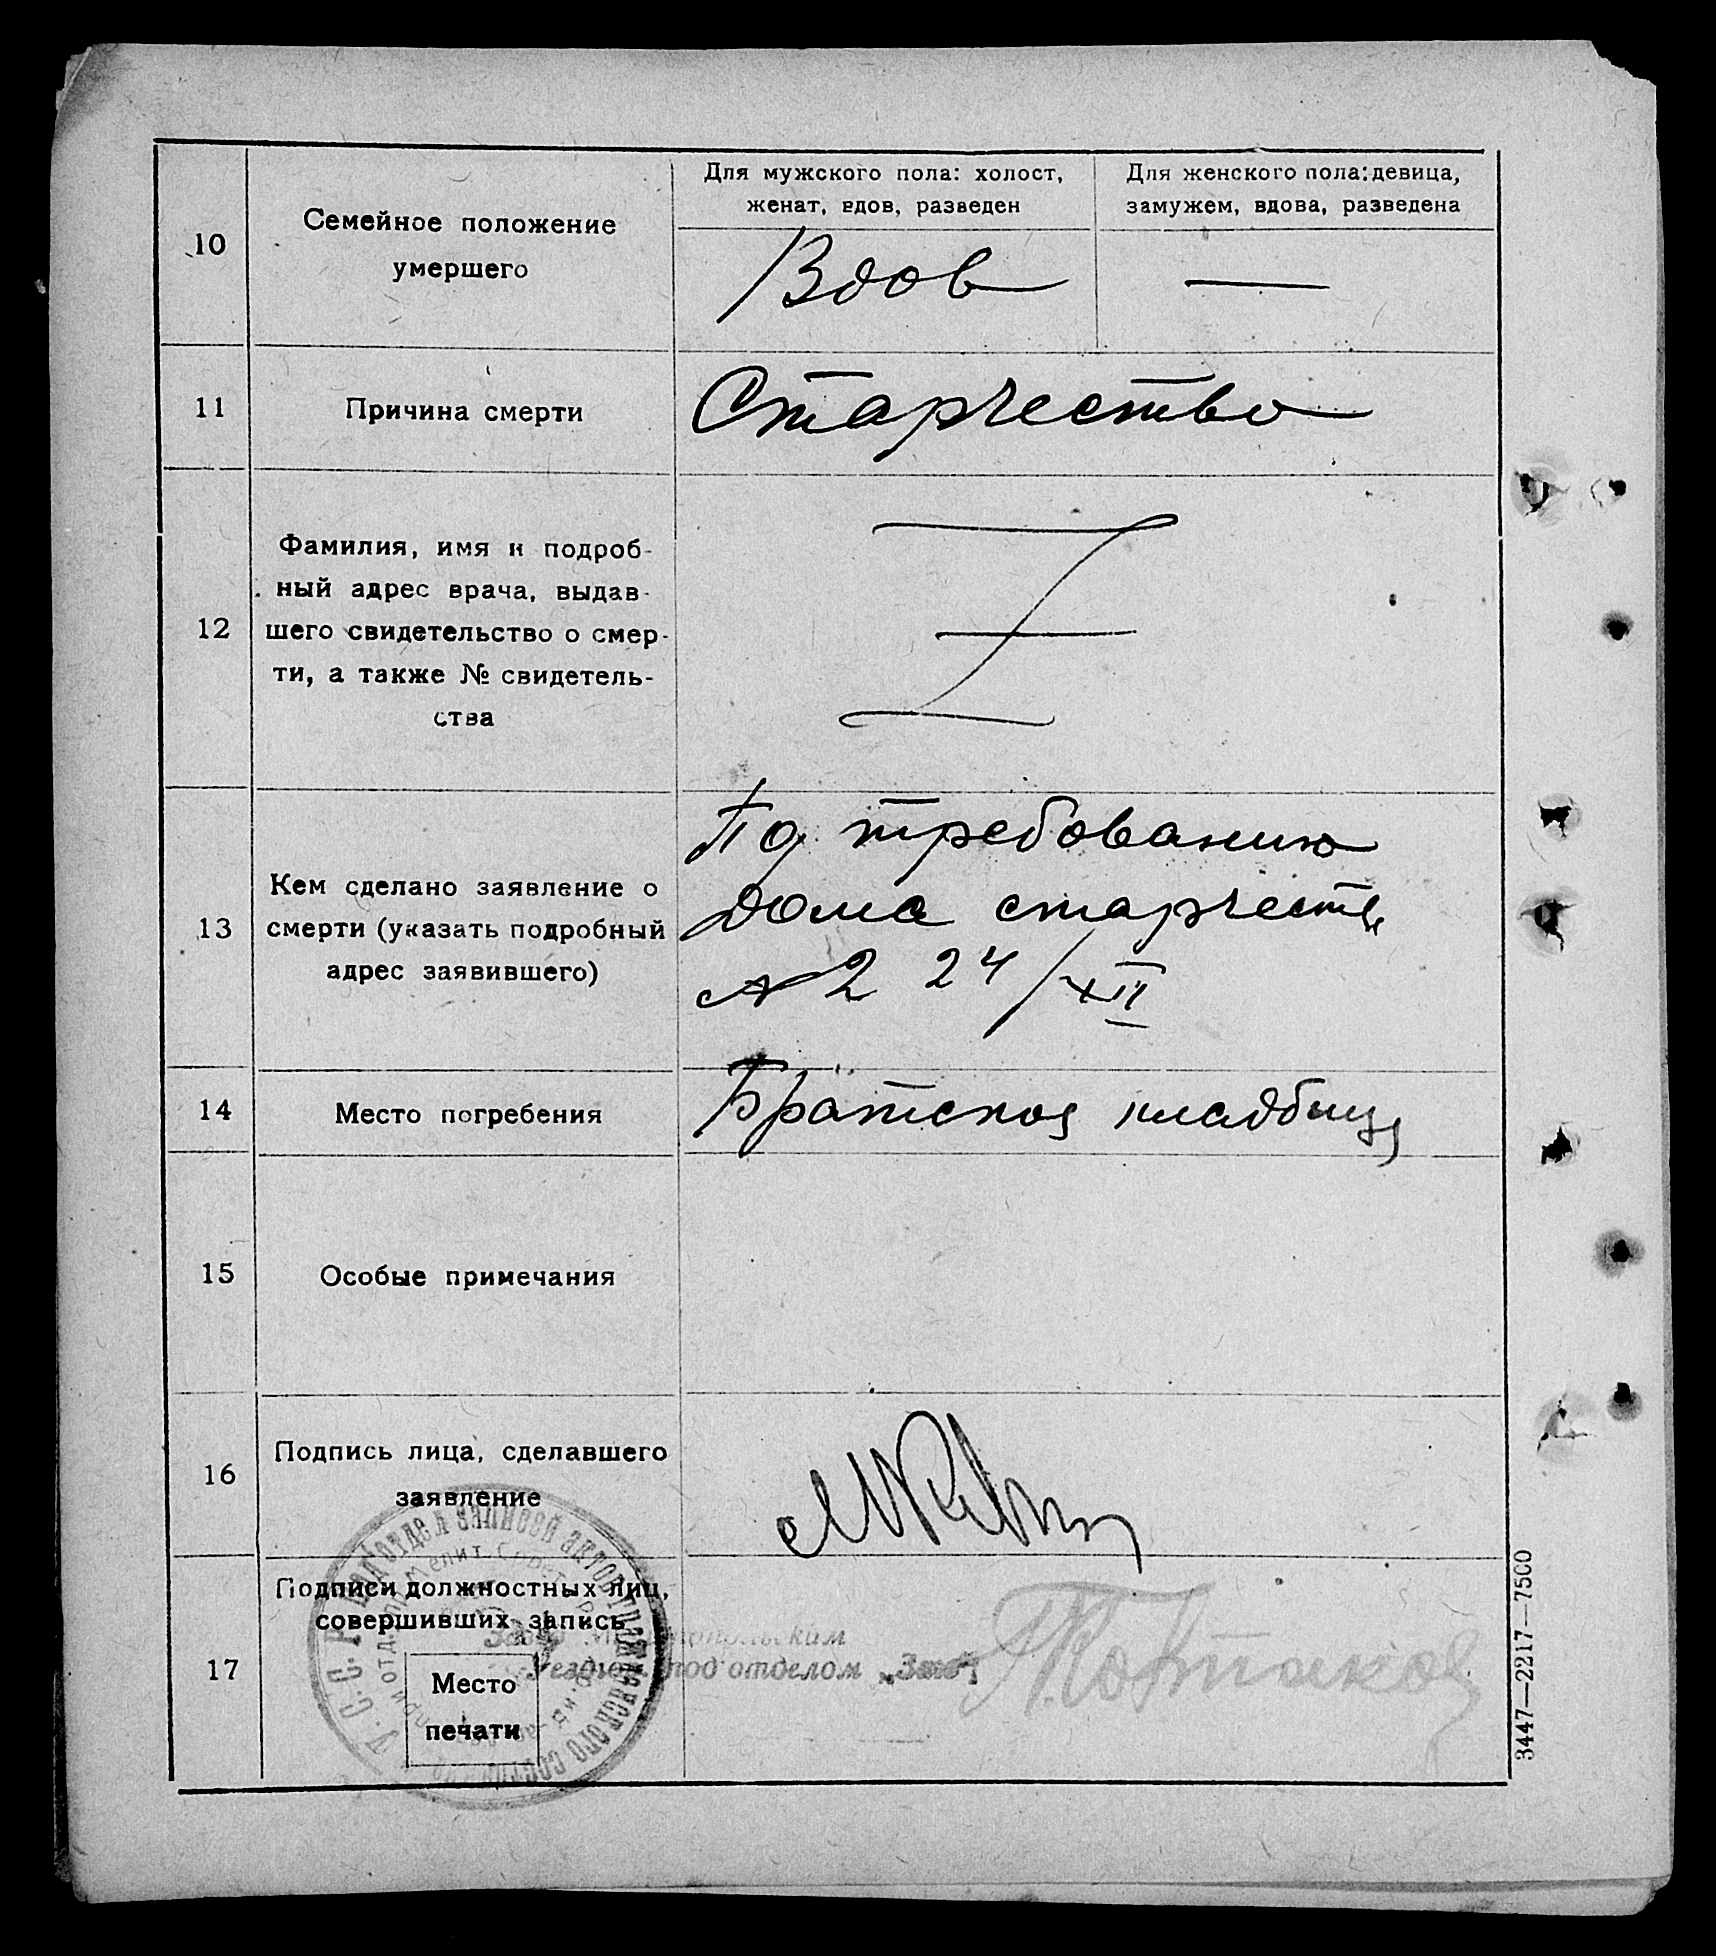 Для мужского пола: холост,
женат, вдов, разведен
Для женского пола: девица,
замужем, вдова, разведена
10
Семейное положение
умершего
Вдов
—
11
Причина смерти
Старчество
12
Фамилия, имя и подроб-
ный адрес врача, выдав-
шего свидетельство о смер-
ти, а также № свидетель-
ства
13
Кем сделано заявление о
смерти (указать подробный
адрес заявившего)
По требованию
дома старчеств
№ 2 24/XII
14
Место погребения
Братское кладбище
15
Особые примечания
16
Подпись лица, сделавшего
заявление
17
Подписи должностных лиц,
совершивших запись
Место
печати
У.С.С.Р. Под'отдел записей актов гражданского состояния
Уездным подотделом „Загс"
3447—2217—7500